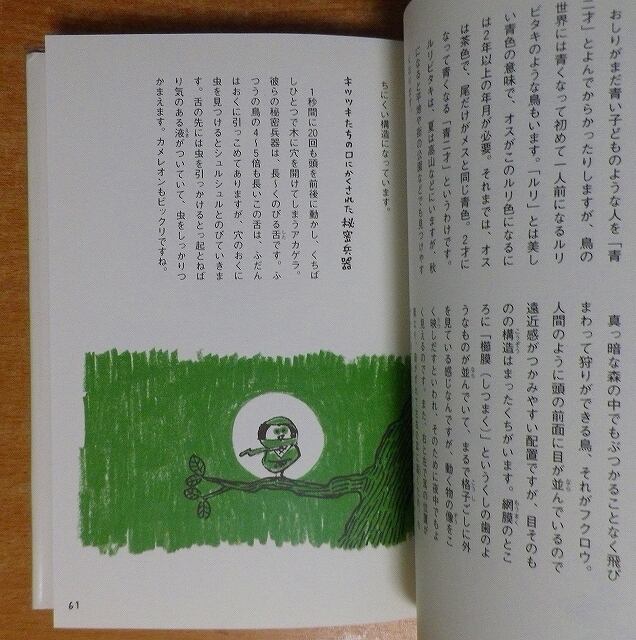 おしりがまだ青い子どものような人を「青
二才」とよんでからかったりしますが、鳥の
世界には青くなって初めて一人前になるルリ
ビタキのような鳥もいます。「ルリ」とは美し
い青色の意味で、オスがこのルリ色になるに
は2年以上の年月が必要。それまでは、オス
は茶色で、尾だけがメスと同じ青色。2才に
なって青くなる「青二才」というわけです。
ルリビタキは、夏は高山などにいますが、秋
になると平地や
の公園などでも見つけやす
真っ暗な森の中でもぶつかることなく飛び
まわって狩りができる鳥、それがフクロウ。
人間のように頭の前面に目が並んでいるので
遠近感がつかみやすい配置ですが、目そのも
のの構造はまったくちがいます。網膜のとこ
ろに「櫛膜(しつまく)」というくしの歯のよ
うなものが並んでいて、まるで格子ごしに外
を見ている感じなんですが、動く物の像をこ
く映しだすといわれ、そのために夜中でもよ
く見えるのです。また、右と左で耳の位置が
ちにくい構造になっています。
キツツキたちの口にかくされた秘密兵器
1秒間に20回も頭を前後に動かし、くちば
しひとつで木に穴を開けてしまうアカゲラ。
彼らの秘密兵器は、長〜くのびる舌です。ふ
つうの鳥の4〜5倍も長いこの舌は、ふだん
はおくに引っこめてありますが、穴のおくに
虫を見つけるとシュルシュルとのびていきま
す。舌の先には虫を引っかけるとっ起とねば
り気のある液がついていて、虫をしっかりつ
かまえます。カメレオンもビックリですね。
61